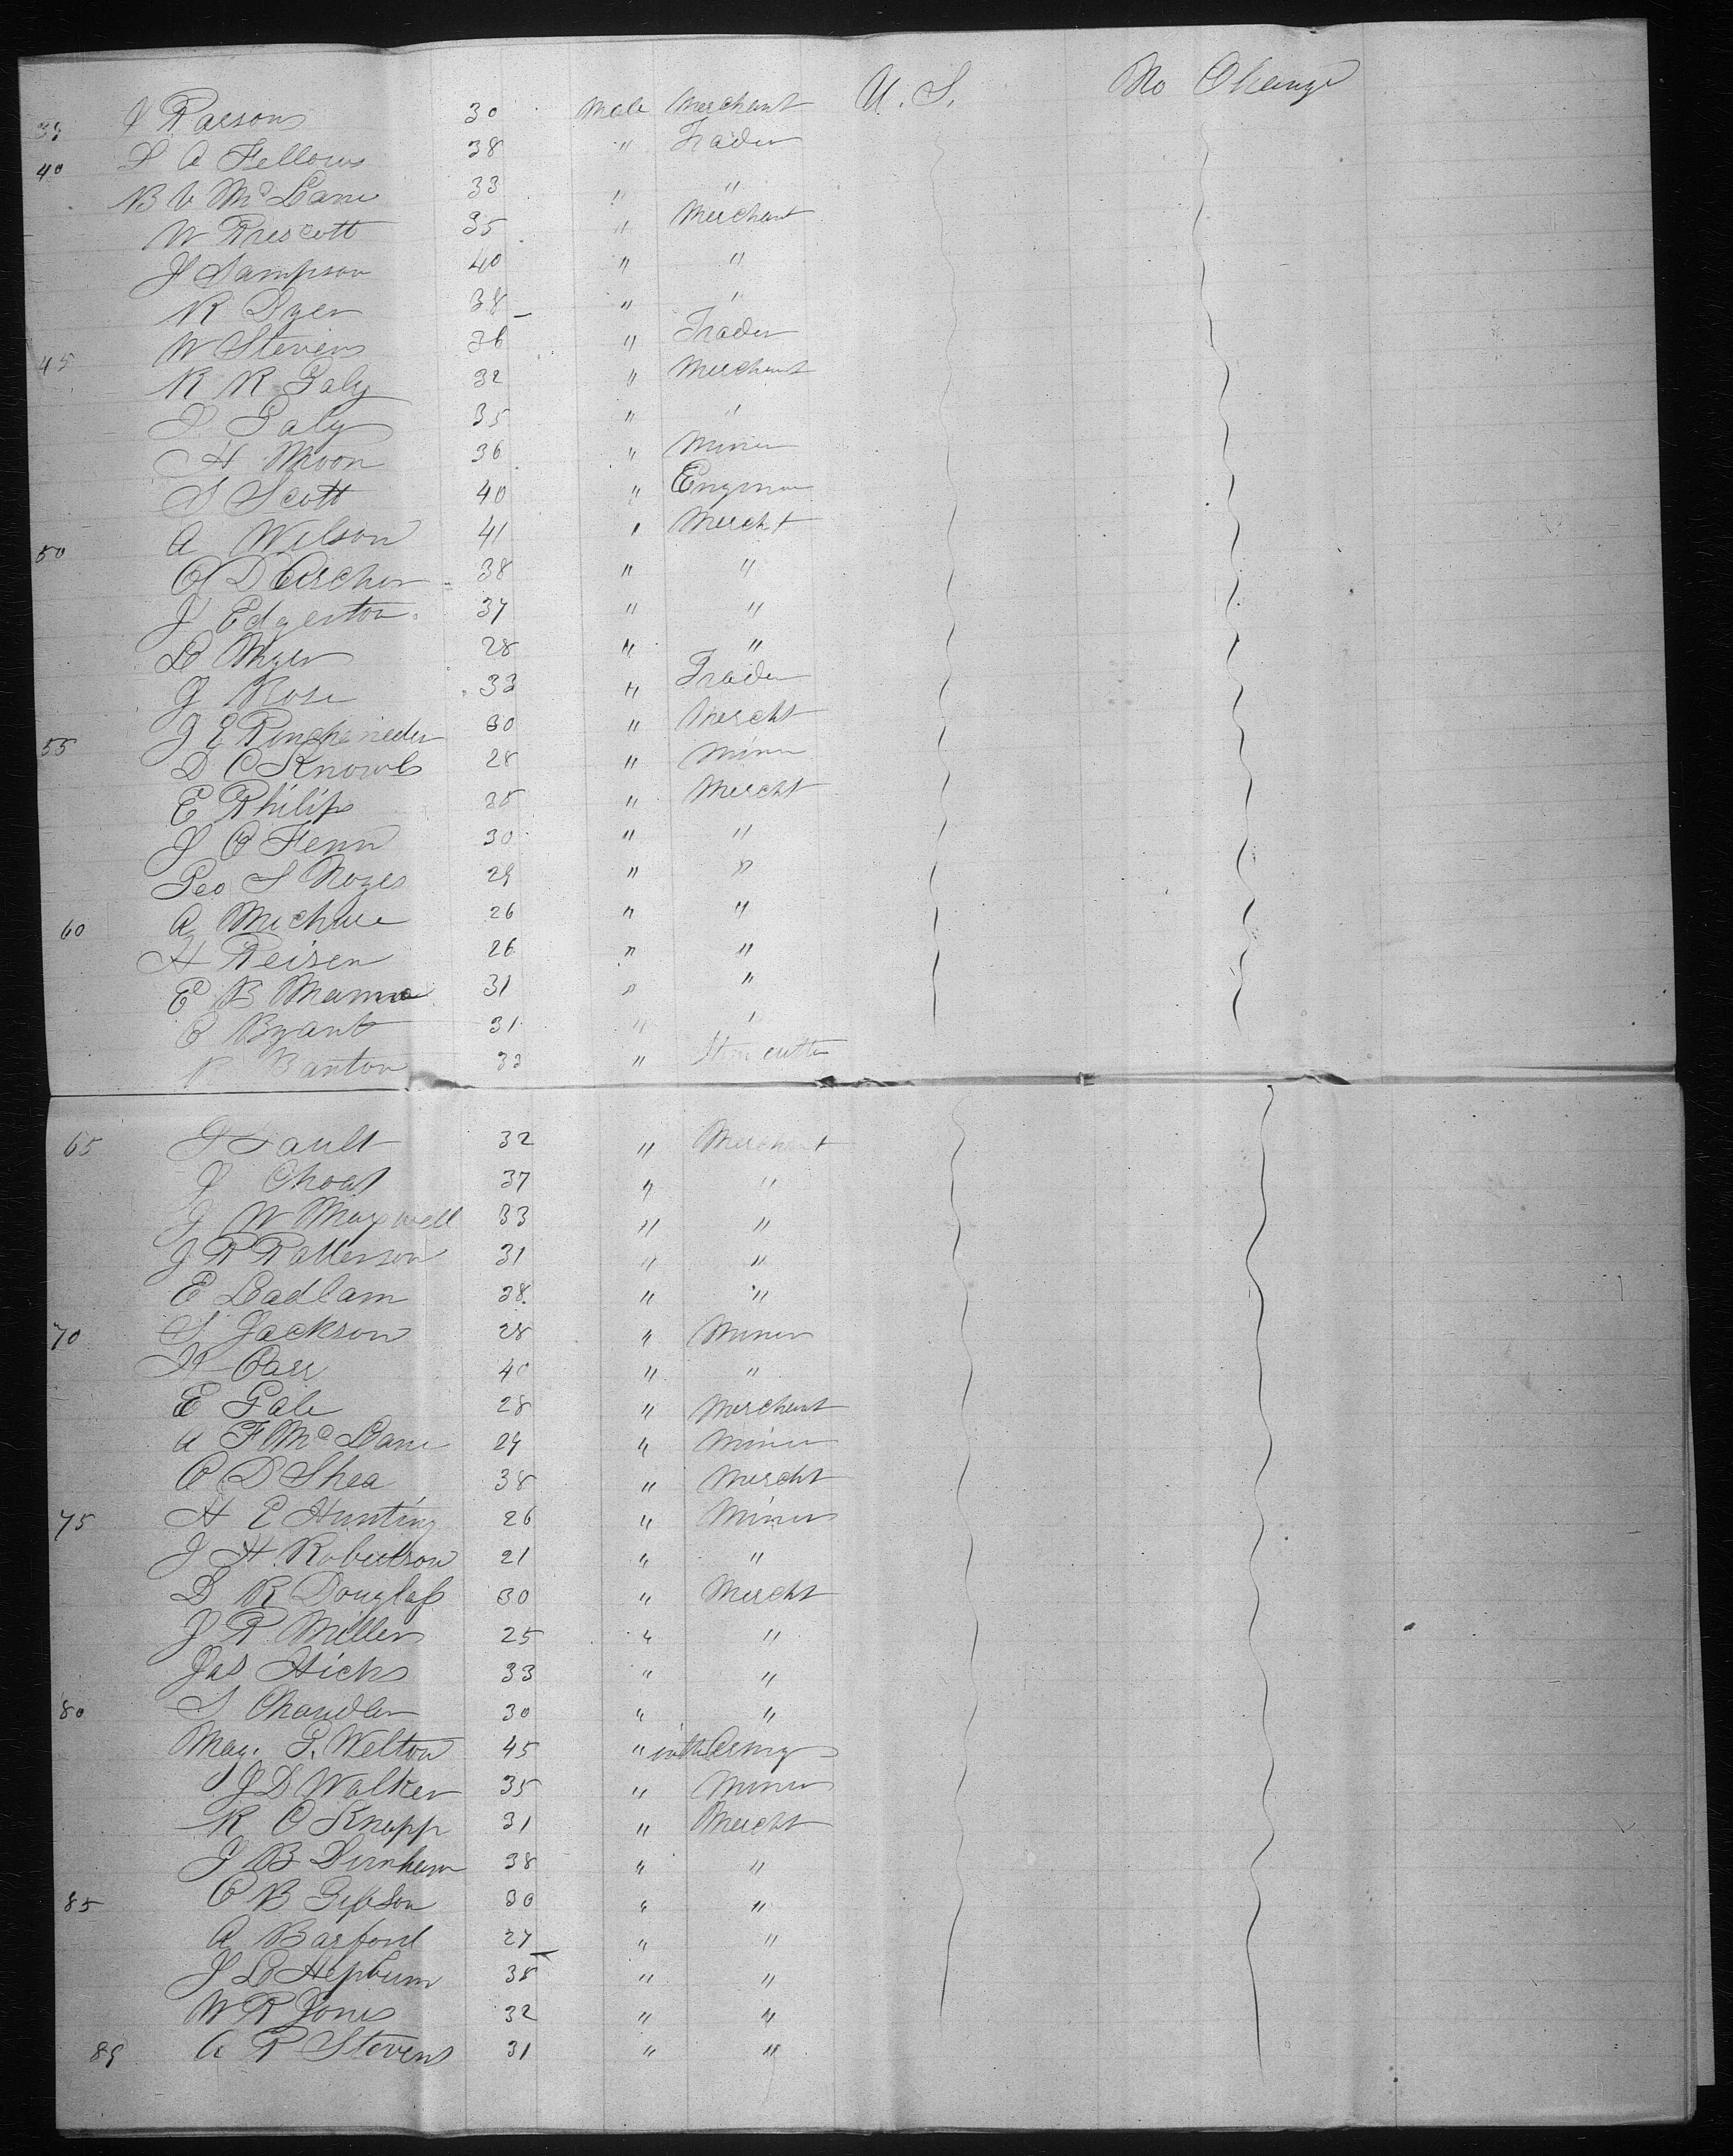 39 J Parson 30 Male Merchant U. S. No Change
40 S A Fellows 38 " Trader
B C McLane 33 " "
W Prescott 35 " Merchant
J Sampson 40 " "
R Dyer 38 " "
45 W Stevens 36 " Trader
R R Galy 32 " Merchant
D Galy 35 " "
H Moon 36 " Miner
S Scott 40 " Enginr
50 A Wilson 41 " Mercht
O D Archer 38 " "
J Edgerton 37 " "
L Myer 28 " "
J Rose 33 " Trader
55 J E 30 " Mercht
D C Knowls 28 " Miner
E Philips 35 " Mercht
J C Fenn 30 " "
Geo S Noyes 29 " "
60 A 26 " "
H Peisen 26 " "
E B 31 " "
C Bryant 31 " "
R Banton 33 " Stone cutter
65 32 " Merchant
J Choat 37 " "
J W Maxwell 33 " "
J P Patterson 31 " "
E Ladlam 28 " "
70 S Jackson 28 " Miner
K Carr 40 " "
E Gale 28 " Merchant
A F McLane 29 " Miner
C D Shea 38 " Mercht
75 H E Hunting 26 " Miner
J H Robertson 21 " "
L R Douglass 30 " Mercht
J P Miller 25 " "
Jas Hicks 33 " "
80 S Chandler 30 " "
Maj. G. Welton 45 " in the Army
J D Walker 35 " Miner
R C Knapp 31 " Mercht
J B Durnham 38 " "
85 C B Gibson 30 " "
A Barford 27 " "
J L Hepburn 38 " "
W P Jones 32 " "
89 A P Stevens 31 " "